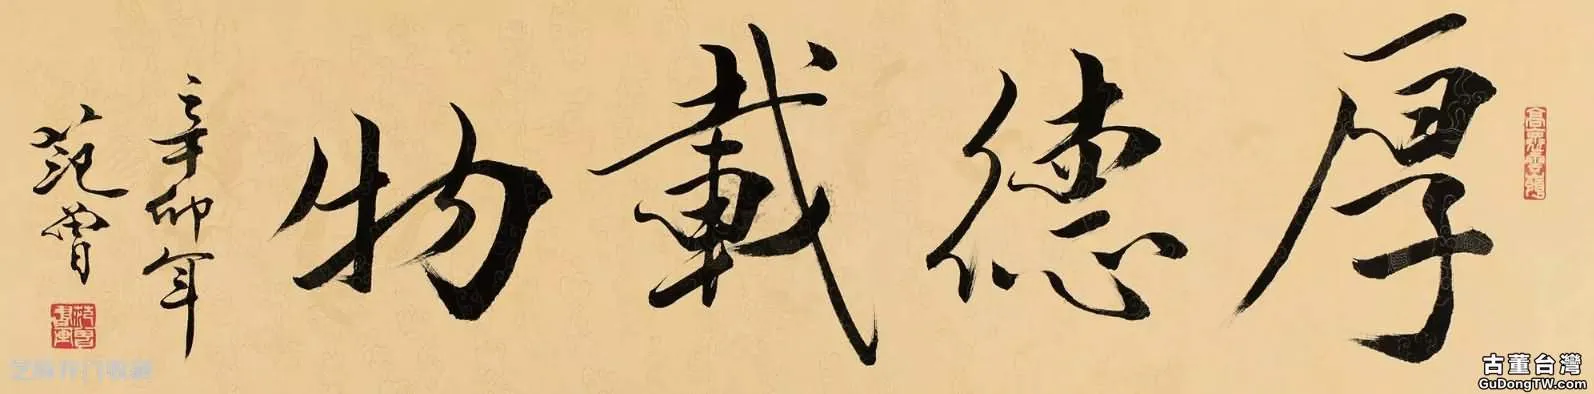 厚德載物
辛卯年
范曾
古董台灣
GuDongTW.com